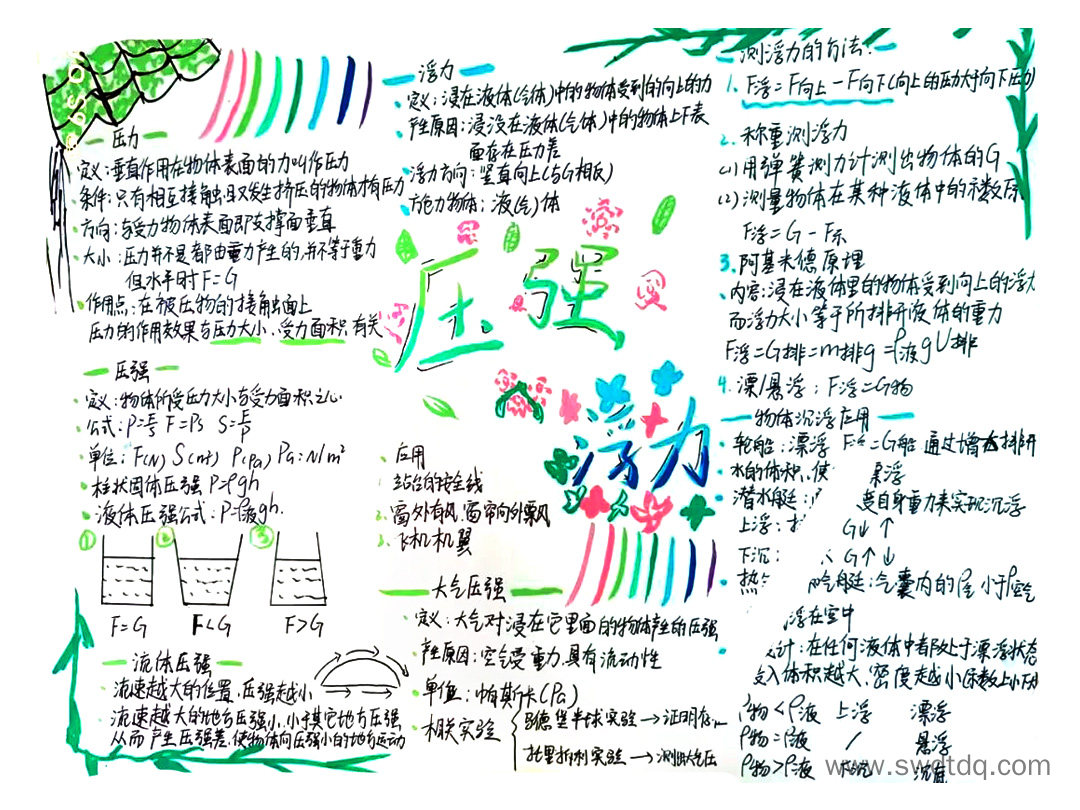 压力
定义:垂直作用在物体表面的力叫作压力
条件:只有相互接触且又发生挤压的物体才有压力
方向:与受力物体表面即支撑面垂直
大小:压力并不是都由重力产生的,并不等于重力
但水平时F=G
作用点:在被压物的接触面上
压力的作用效果与压力大小、受力面积有关
压强
定义:物体所受压力大小与受力面积之比
公式:P=F/S F=PS S=F/P
单位:F(N) S(m²) P(Pa) Pa=N/m²
柱状固体压强 P=ρgh
液体压强公式:P=ρ液gh.
① ② ③
F=G F<G F>G
流体压强
流速越大的位置,压强越小
流速越大的地方压强小,小于其它地方压强
从而产生压强差,使物体向压强小的地方运动
浮力
定义:浸在液体(气体)中的物体受到的向上的力
产生原因:浸没在液体(气体)中的物体上下表
面存在压力差
浮力方向:竖直向上(与G相反)
施力物体:液(气)体
压强
浮力
应用
站台的安全线
2. 窗外有风,窗帘向外飘
3. 飞机机翼
大气压强
定义:大气对浸在它里面的物体产生的压强
产生原因:空气受重力,具有流动性
单位:帕斯卡(Pa)
相关实验
马德堡半球实验→证明存
托里拆利实验→测出大气压
测浮力的方法:
1. F浮=F向上-F向下(向上的压力大于向下压力)
2. 称重测浮力
(1)用弹簧测力计测出物体的G
(2)测量物体在某种液体中的示数F示
F浮=G-F示
3. 阿基米德原理
内容:浸在液体里的物体受到向上的浮力
而浮力大小等于所排开液体的重力
F浮=G排=m排g=ρ液gV排
4. 漂/悬浮:F浮=G物
物体沉浮应用
轮船:漂浮 F浮=G船 通过增大排开
水的体积,使 浮
潜水艇: 变自身重力来实现沉浮
上浮: G↓↑
下沉: G↑↓
热 艇:气囊内的ρ气小于ρ空气
浮在空中
计:在任何液体中都处于漂浮状态
入体积越大,密度越小(示数上小下
ρ物<ρ液 上浮 漂浮
ρ物=ρ液 / 悬浮
ρ物>ρ液 下沉 沉底
www.swdtdq.com